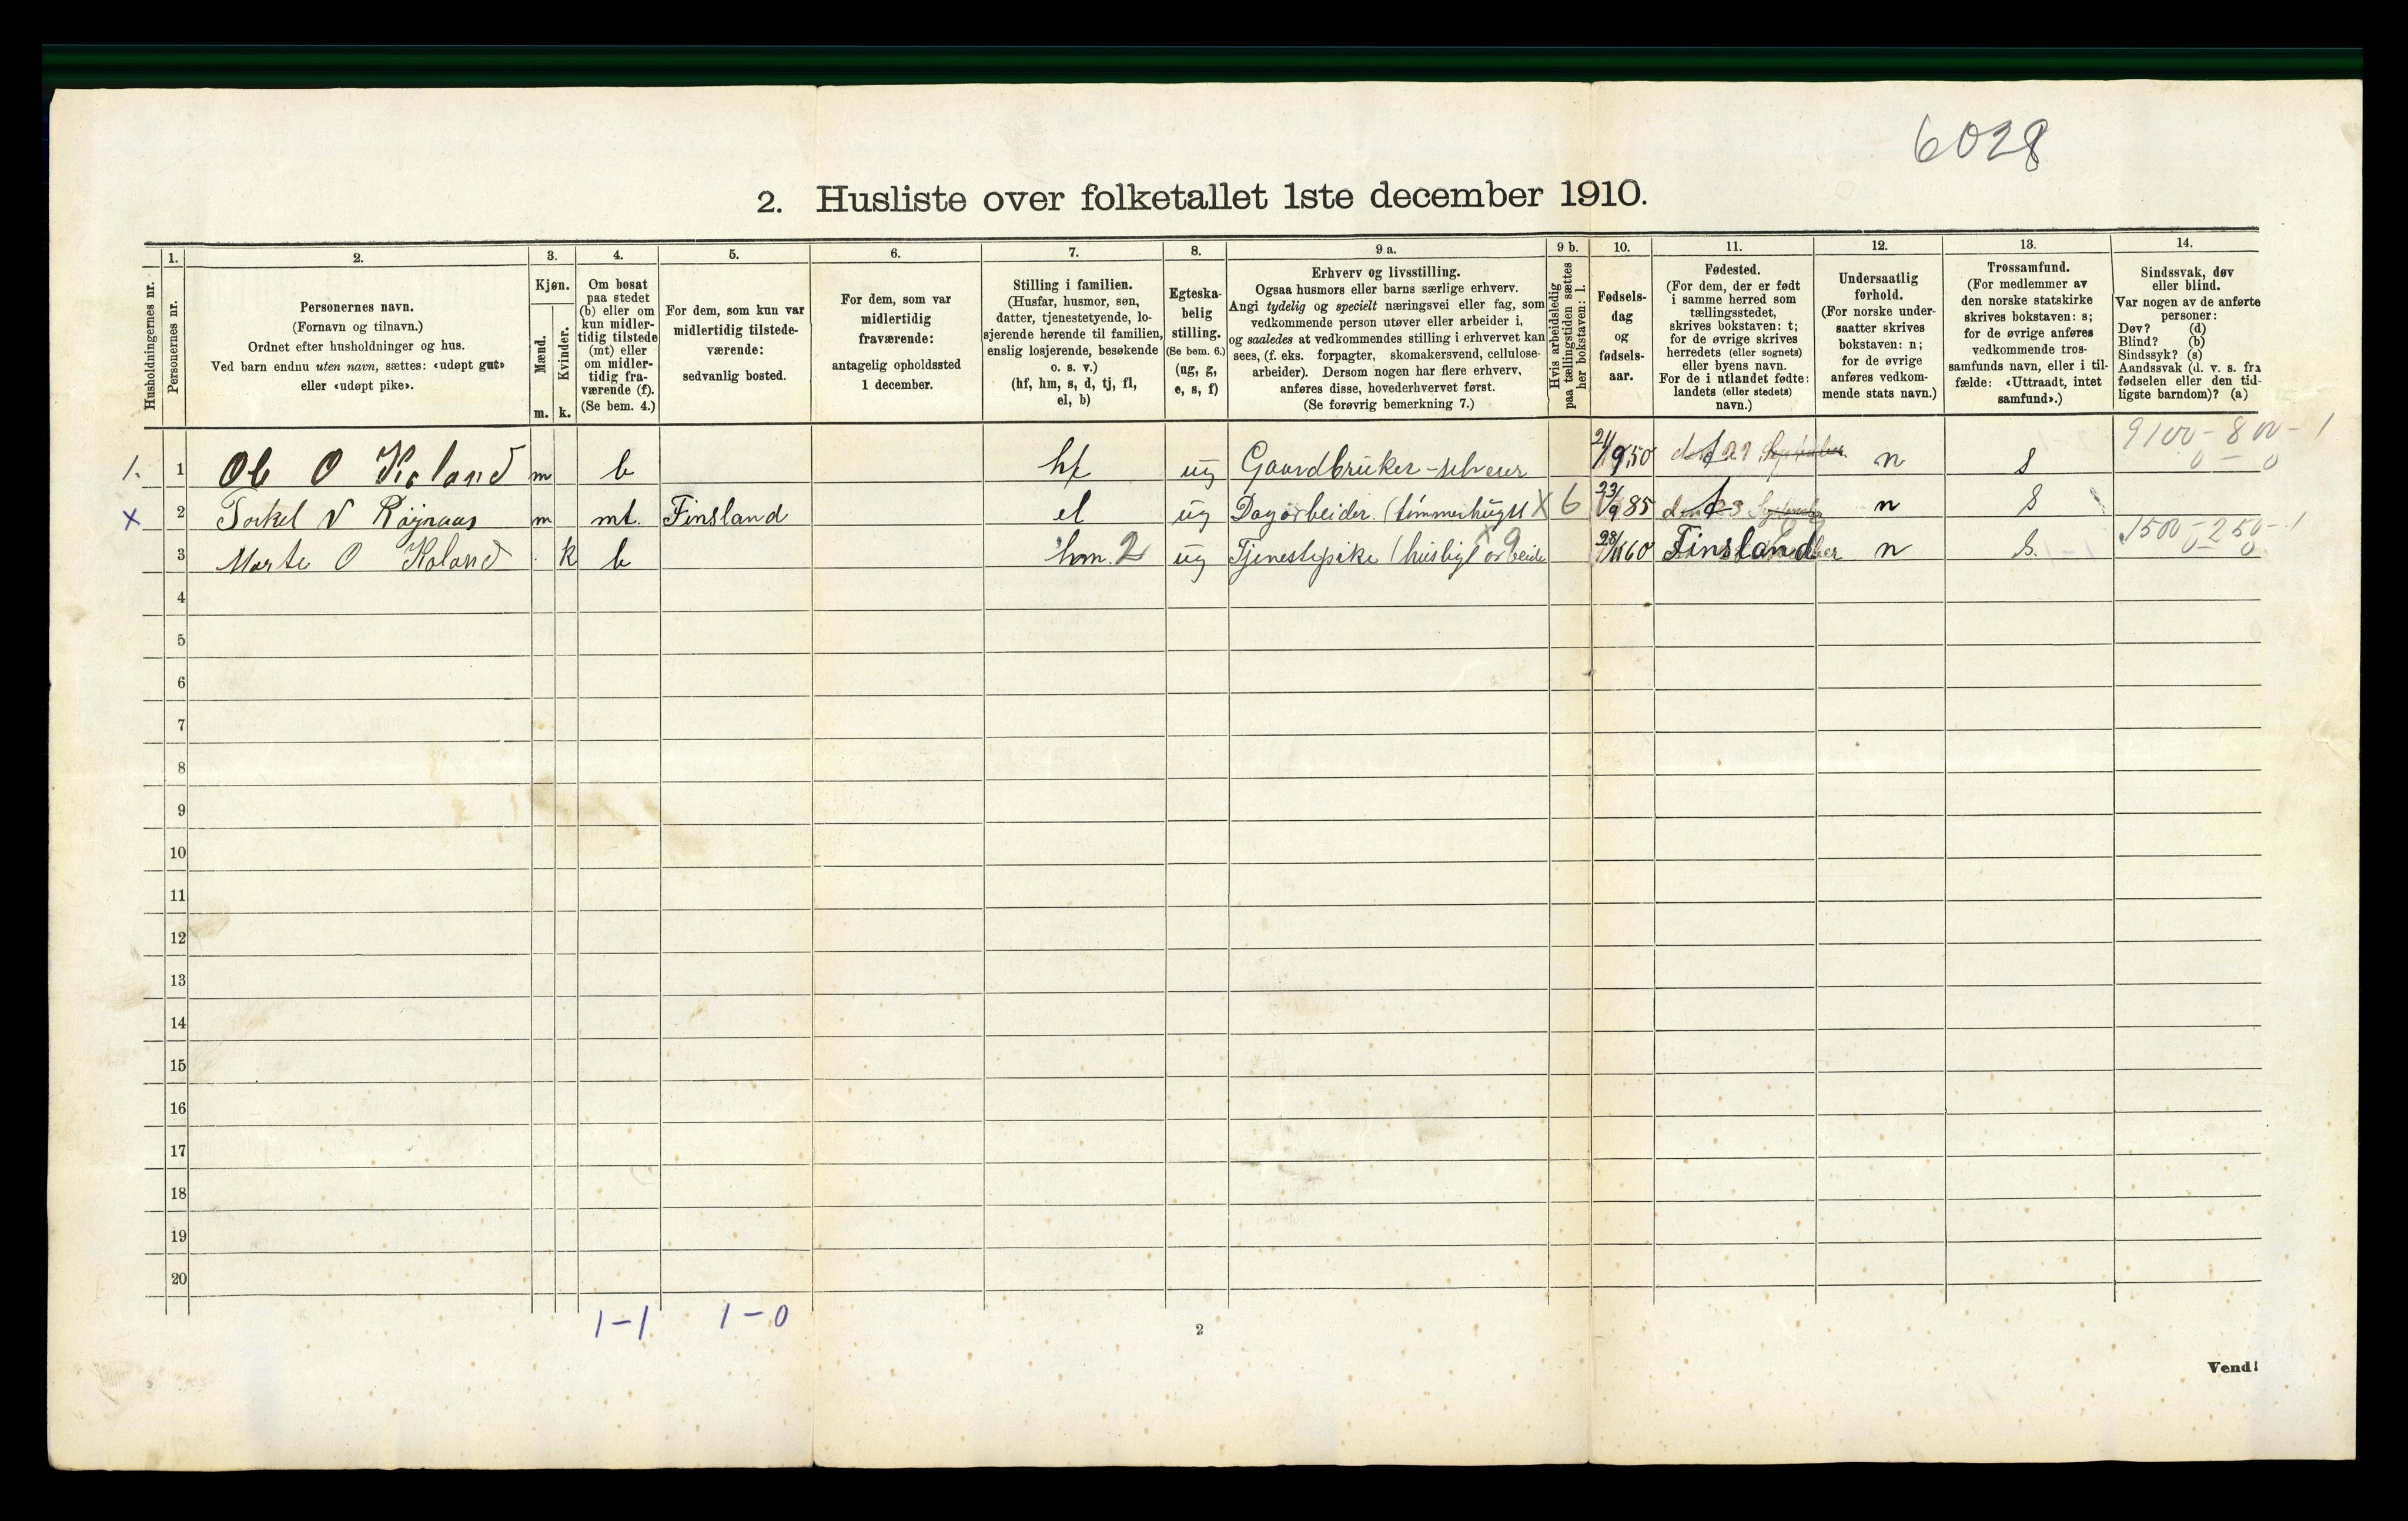 6028
2. Husliste over folketallet 1ste december 1910.
Husholdningernes nr.
1.
Personernes nr.
2.
Personernes navn.
(Fornavn og tilnavn.)
Ordnet efter husholdninger og hus.
Ved barn endnu uten navn, sættes: «udøpt gut»
eller «udøpt pike».
3.
Kjøn.
Mænd.
Kvinder.
m. k.
4.
Om bosat
paa stedet
(b) eller om
kun midler-
tidig tilstede
(mt) eller
om midler-
tidig fra-
værende (f).
(Se bem. 4.)
5.
For dem, som kun var
midlertidig tilstede-
værende:
sedvanlig bosted.
6.
For dem, som var
midlertidig
fraværende:
antagelig opholdssted
1 december.
7.
Stilling i familien.
(Husfar, husmor, søn,
datter, tjenestetyende, lo-
sjerende hørende til familien,
enslig losjerende, besøkende
o. s. v.)
(hf, hm, s, d, tj, fl,
el, b)
8.
Egteska-
belig
stilling.
(Se bem. 6.)
(ug, g,
e, s, f)
9 a.
Erhverv og livsstilling.
Ogsaa husmors eller barns særlige erhverv.
Angi tydelig og specielt næringsvei eller fag, som
vedkommende person utøver eller arbeider i,
og saaledes at vedkommendes stilling i erhvervet kan
sees, (f. eks. forpagter, skomakersvend, cellulose-
arbeider). Dersom nogen har flere erhverv,
anføres disse, hovederhvervet først.
(Se forøvrig bemerkning 7.)
9 b.
Hvis arbeidsledig
paa tællingstiden sættes
her bokstaven: l.
10.
Fødsels-
dag
og
fødsels-
aar.
11.
Fødested.
(For dem, der er født
i samme herred som
tællingsstedet,
skrives bokstaven: t;
for de øvrige skrives
herredets (eller sognets)
eller byens navn.
For de i utlandet fødte:
landets (eller stedets)
navn.)
12.
Undersaatlig
forhold.
(For norske under-
saatter skrives
bokstaven: n;
for de øvrige
anføres vedkom-
mende stats navn.)
13.
Trossamfund.
(For medlemmer av
den norske statskirke
skrives bokstaven: s;
for de øvrige anføres
vedkommende tros-
samfunds navn, eller i til-
fælde: «Uttraadt, intet
samfund».)
14.
Sindssvak, døv
eller blind.
Var nogen av de anførte
personer:
Døv? (d)
Blind? (b)
Sindssyk? (s)
Aandssvak (d. v. s. fra
fødselen eller den tid-
ligste barndom)? (a)
9100-800-1
0-0
1. 1 O Koland m b hf ug Gaardbruker-selveier 21/9 50 t n s
x 2 Torkel Røjnaas m mt. Finsland el ug Dagarbeider (tømmerhugst x 6 23/9 85 t n s
1500-250-1
0-0
3 Marte O Koland k b hm. 2 ug Tjenestepike (husligt arbeide x 9 28/11 60 Finsland n s.
4
5
6
7
8
9
10
11
12
13
14
15
16
17
18
19
20
1-1 1-0
2
Vend!